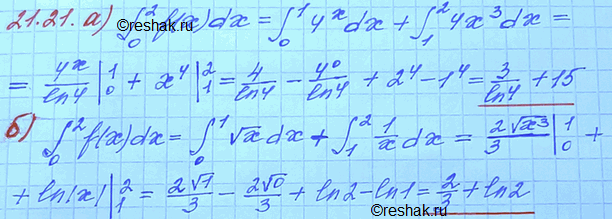 21.21. а) ∫₀² f(x)dx = ∫₀¹ 4ˣ dx + ∫₁² 4x³ dx =
= 4ˣ/ln4 |₀¹ + x⁴ |₁² = 4/ln4 − 4⁰/ln4 + 2⁴ − 1⁴ = 3/ln4 + 15
б) ∫₀² f(x)dx = ∫₀¹ √x dx + ∫₁² 1/x dx = 2√x³/3 |₀¹ +
+ ln|x| |₁² = 2√1/3 − 2√0/3 + ln2 − ln1 = 2/3 + ln2